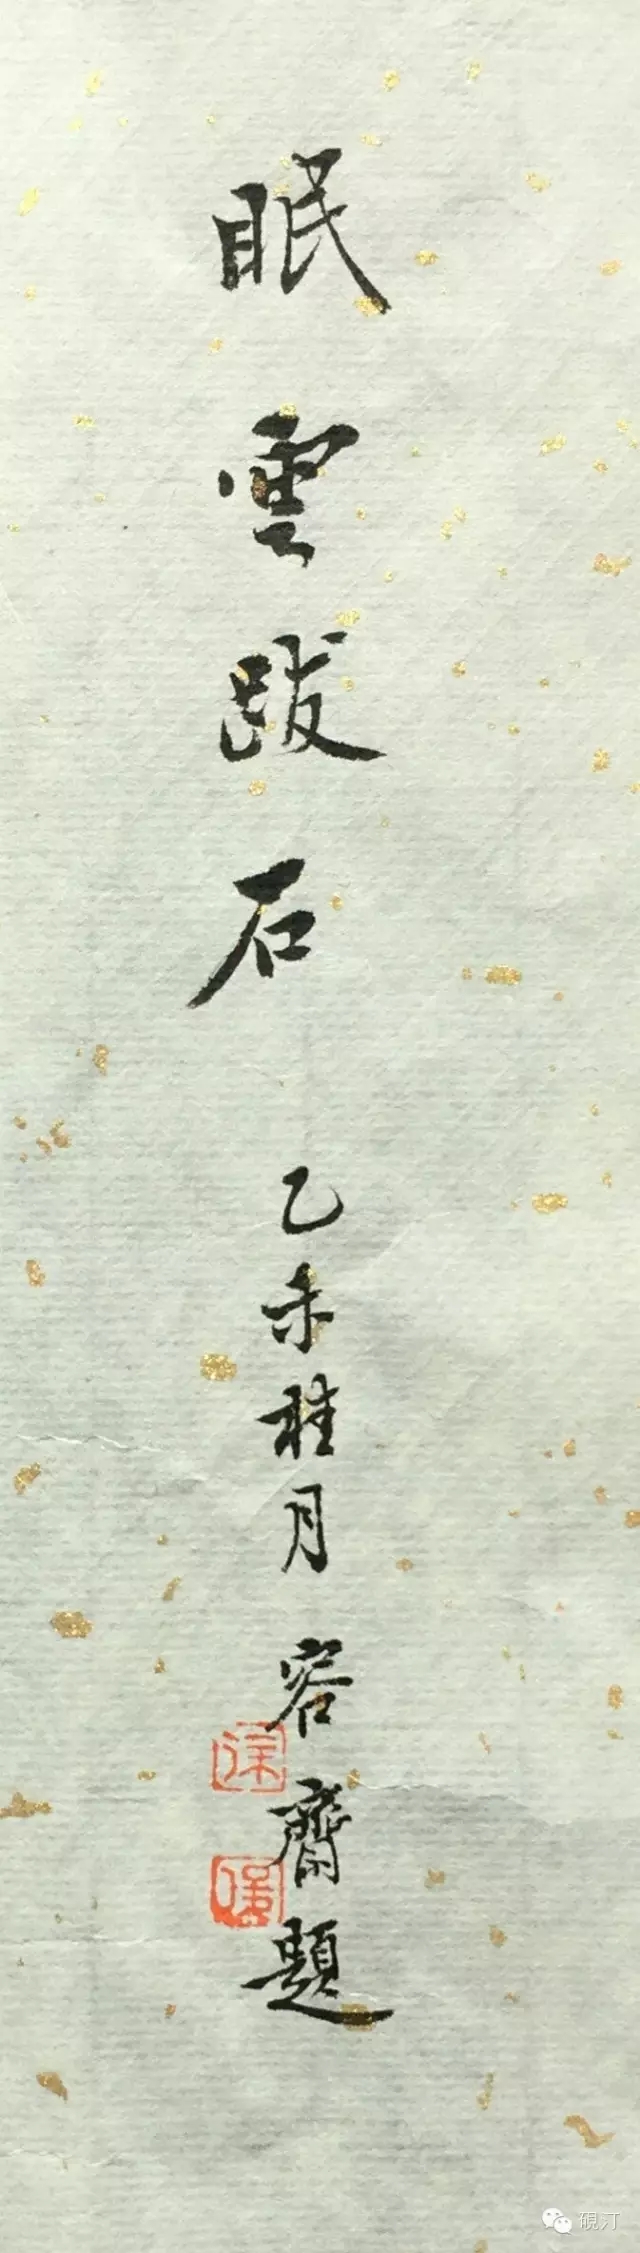 眠雲跋石
乙未桂月 容齋題
徐
硯汀